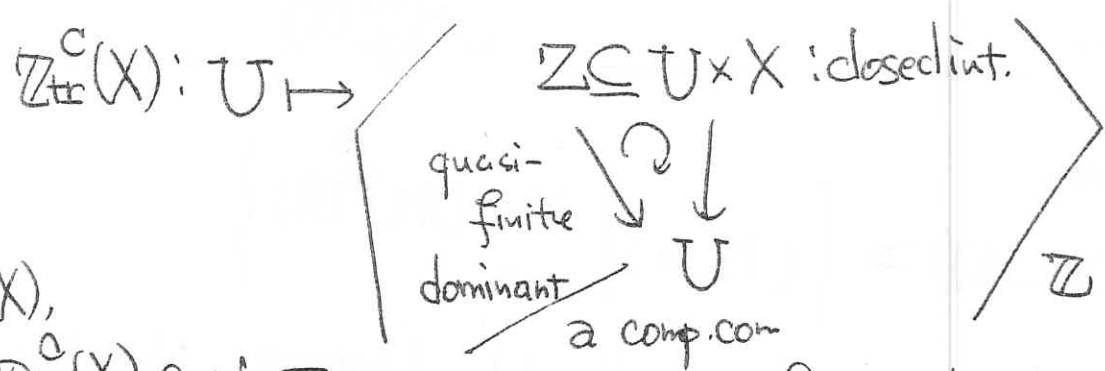 ℤ_tr^c(X) : U ↦ ⟨ Z ⊆ U × X : closed int. ⟩_ℤ
quasi-
finitre
dominant
U
a comp. com
X),